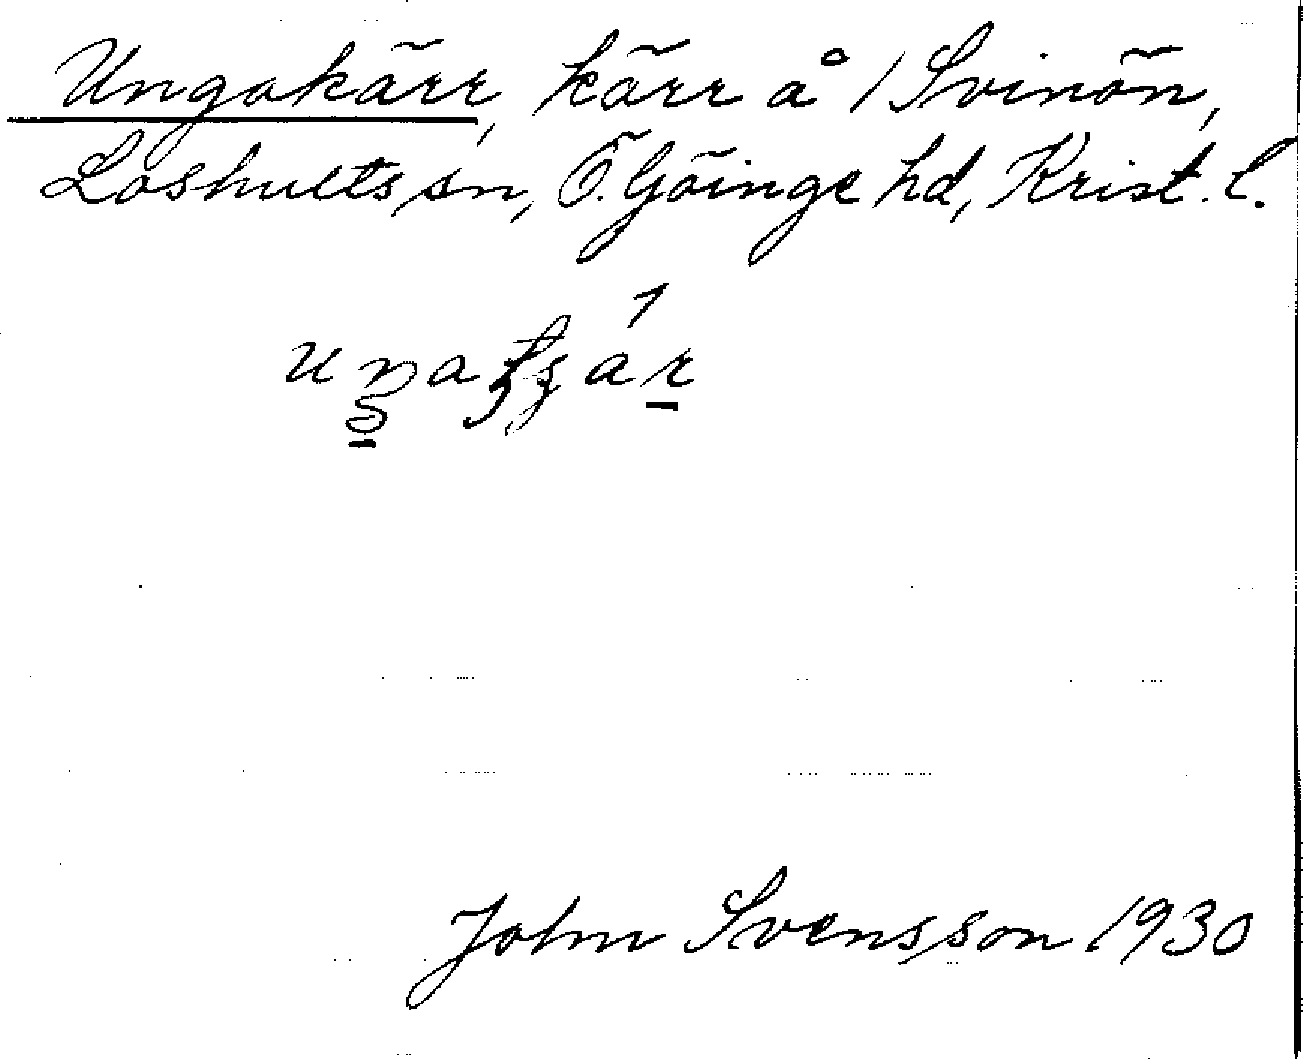 Ungakärr, kärr å 1 Svinön,
Loshults sn, Ö. Göinge hd, Krist. l.
John Svensson 1930